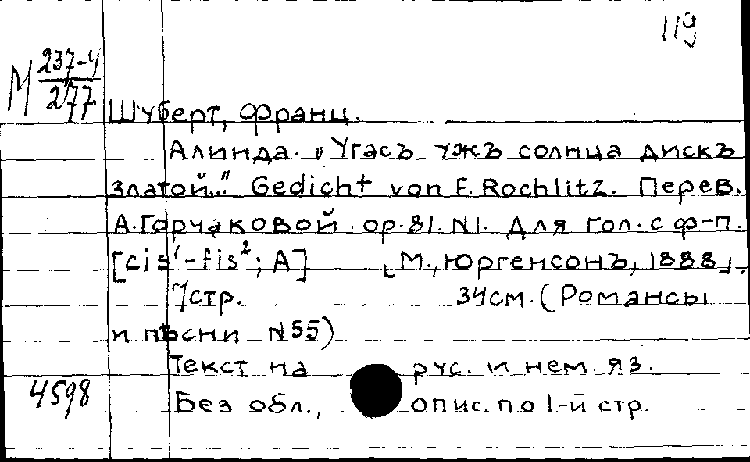 119
М 237-4
277
Шуберт, Франц.
Алинда. „Угасъ ужъ солнца дискъ
златой.." Gedicht von F. Rochlitz. Перев.
А. Горчаковой. ор. 81. N1. Для гол. с ф-п.
[cis¹-fis²; A] [М., Юргенсонъ, 1888].
7стр. 34см. (Романсы
и пѣсни N55)
Текст на рус. и нем. яз.
4598
Без обл., опис. по 1-й стр.